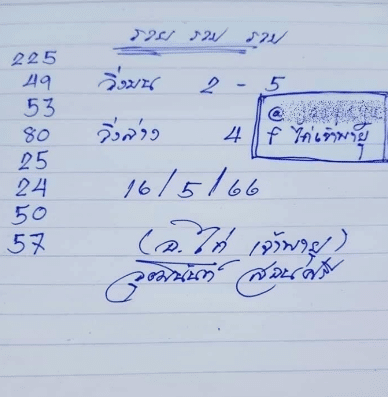 รวย รวย รวย
225
49
53
80
25
24
50
57
วิ่งบน 2 - 5
วิ่งล่าง 4
@
f ไก่เจ้าพายุ
16/5/66
(อ. ไก่ เจ้าพายุ)